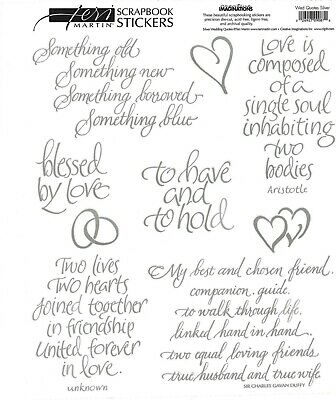 Teri
MARTIN
SCRAPBOOK
STICKERS
IMAGINATIONS
Wed Quotes Silver
These beautiful scrapbooking stickers are
precision diecut, acid free, lignin free,
and archival quality.
Something old
Something new
Something borrowed
Something blue
Love is
composed
of a
single soul
inhabiting
two
bodies
Aristotle
blessed
by love
to have
and
to hold
Two lives
Two hearts
joined together
in friendship
United forever
in love
unknown
My best and chosen friend,
companion, guide,
to walk through life,
linked hand in hand,
two equal, loving friends,
true husband and true wife.
SIR CHARLES GAVAN DUFFY